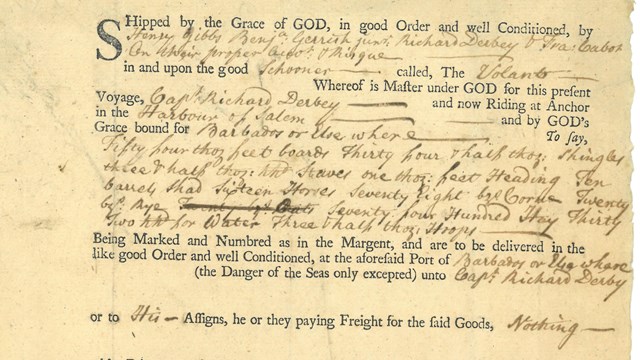 SHipped by the Grace of GOD, in good Order and well Conditioned, by
Henry Gibbs Benja: Gerrish junr: Richard Derbey & Fra: Cabot
On their proper Accot. & Risque
in and upon the good Schooner called, The Volante
Whereof is Master under GOD for this present
Voyage, Capt: Richard Derbey and now Riding at Anchor
in the Harbour of Salem and by GOD's
Grace bound for Barbados or Else where To say,
Fifty four thoz feet boards Thirty four & half thoz: Shingles
three & half thoz: hhd Staves one thoz: feet Heading Ten
barrels Shad Sixteen Horses Seventy Eight Corne Twenty
Rye Twenty Oats Seventy four Hundred Hey Thirty
Two hhd for Water Three & half thoz: Hoops
Being Marked and Numbred as in the Margent, and are to be delivered in the
like good Order and well Conditioned, at the aforesaid Port of Barbados or Else where
(the Danger of the Seas only excepted) unto Capt: Richard Derby
or to His Assigns, he or they paying Freight for the said Goods, Nothing